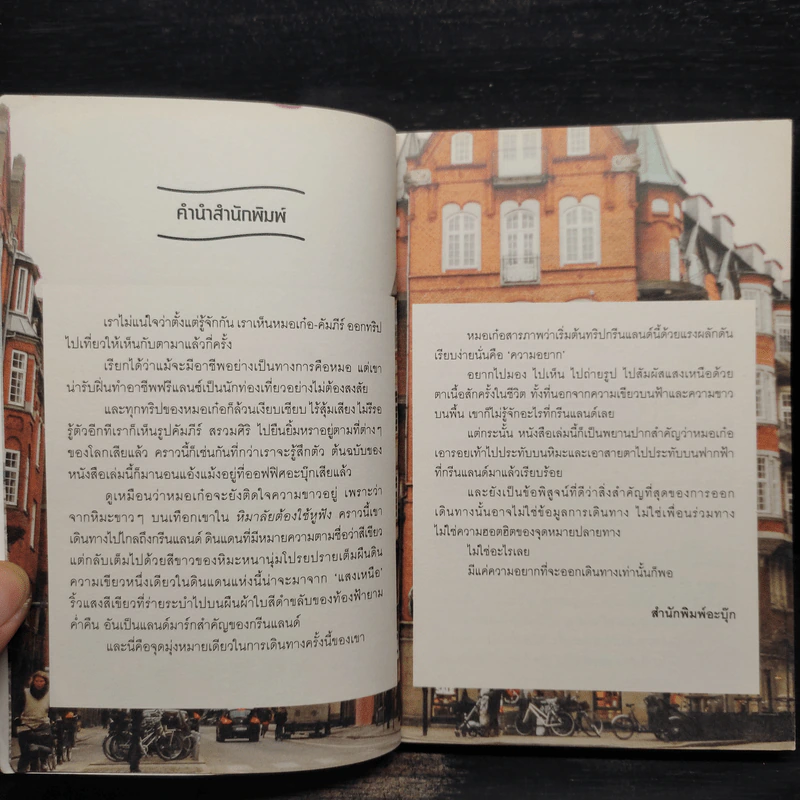 คำนำสำนักพิมพ์
เราไม่แน่ใจว่าตั้งแต่รู้จักกัน เราเห็นหมอเก๋อ-คัมภีร์ ออกทริป
ไปเที่ยวให้เห็นกับตามาแล้วกี่ครั้ง
เรียกได้ว่าแม้จะมีอาชีพอย่างเป็นทางการคือหมอ แต่เขา
น่ารับฝิ่นทำอาชีพฟรีแลนซ์เป็นนักท่องเที่ยวอย่างไม่ต้องสงสัย
และทุกทริปของหมอเก๋อก็ล้วนเงียบเชียบ ไร้สุ้มเสียง ไม่รีรอ
รู้ตัวอีกทีเราก็เห็นรูปคัมภีร์ สรวมศิริ ไปยืนยิ้มหราอยู่ตามที่ต่างๆ
ของโลกเสียแล้ว คราวนี้ก็เช่นกันที่กว่าเราจะรู้สึกตัว ต้นฉบับของ
หนังสือเล่มนี้ก็มานอนแอ้งแม้งอยู่ที่ออฟฟิศอะบุ๊กเสียแล้ว
ดูเหมือนว่าหมอเก๋อจะยังติดใจความขาวอยู่ เพราะว่า
จากหิมะขาวๆ บนเทือกเขาใน หิมาลัยต้องใช้หูฟัง คราวนี้เขา
เดินทางไปไกลถึงกรีนแลนด์ ดินแดนที่มีหมายความตามชื่อว่าสีเขียว
แต่กลับเต็มไปด้วยสีขาวของหิมะหนานุ่มโปรยปรายเต็มผืนดิน
ความเขียวหนึ่งเดียวในดินแดนแห่งนี้น่าจะมาจาก ‘แสงเหนือ’
ริ้วแสงสีเขียวที่ร่ายระบำไปบนผืนผ้าใบสีดำขลับของท้องฟ้ายาม
ค่ำคืน อันเป็นแลนด์มาร์กสำคัญของกรีนแลนด์
และนี่คือจุดมุ่งหมายเดียวในการเดินทางครั้งนี้ของเขา
หมอเก๋อสารภาพว่าเริ่มต้นทริปกรีนแลนด์นี้ด้วยแรงผลักดัน
เรียบง่ายนั่นคือ ‘ความอยาก’
อยากไปมอง ไปเห็น ไปถ่ายรูป ไปสัมผัสแสงเหนือด้วย
ตาเนื้อสักครั้งในชีวิต ทั้งที่นอกจากความเขียวบนฟ้าและความขาว
บนพื้น เขาก็ไม่รู้จักอะไรที่กรีนแลนด์เลย
แต่กระนั้น หนังสือเล่มนี้ก็เป็นพยานปากสำคัญว่าหมอเก๋อ
เอารอยเท้าไปประทับบนหิมะและเอาสายตาไปประทับบนฟากฟ้า
ที่กรีนแลนด์มาแล้วเรียบร้อย
และยังเป็นข้อพิสูจน์ที่ดีว่าสิ่งสำคัญที่สุดของการออก
เดินทางนั้นอาจไม่ใช่ข้อมูลการเดินทาง ไม่ใช่เพื่อนร่วมทาง
ไม่ใช่ความฮอตฮิตของจุดหมายปลายทาง
ไม่ใช่อะไรเลย
มีแค่ความอยากที่จะออกเดินทางเท่านั้นก็พอ
สำนักพิมพ์อะบุ๊ก